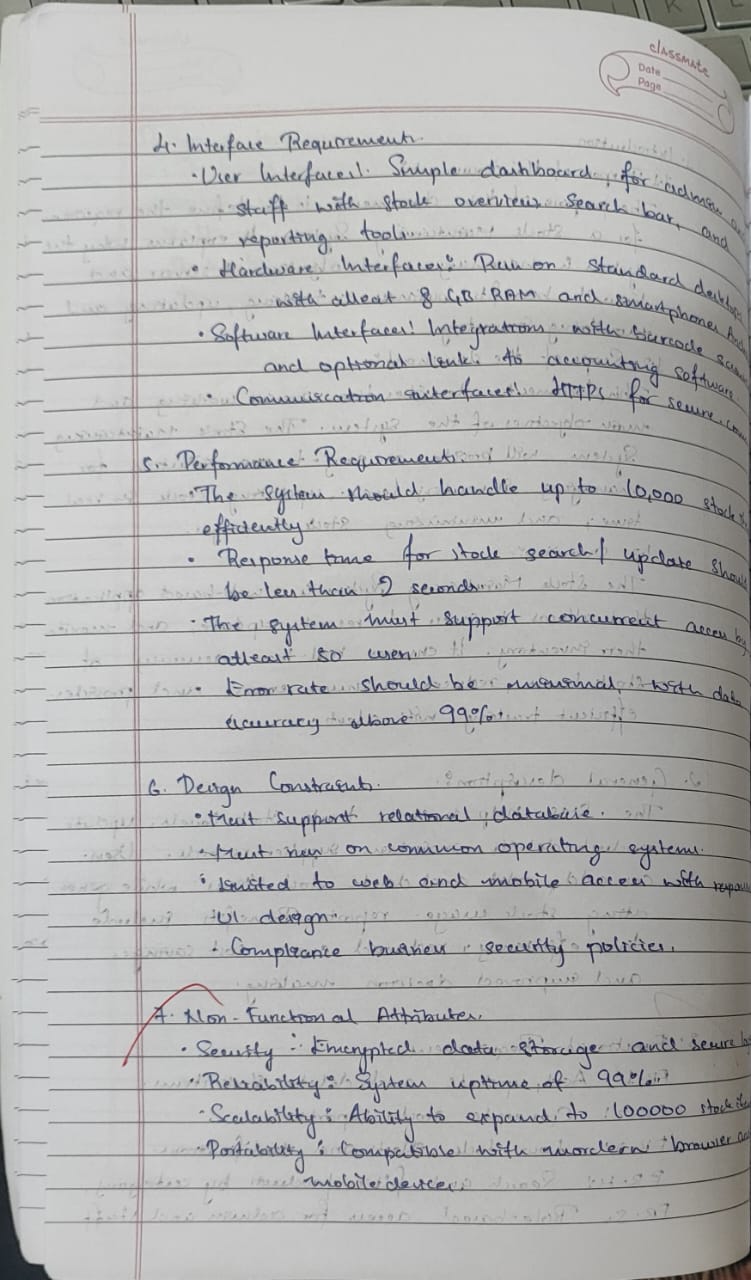 classmate
Date
Page
4. Interface Requirements.
• User Interfaces: Simple dashboard for admin
staff with stock overview, search bar, and
reporting tools.
• Hardware Interfaces: Run on standard desktops
with atleast 8 GB RAM and smartphones
• Software Interfaces: Integrations with barcode
and optional link to accounting software
• Communication interfaces: HTTPS for secure
5. Performance Requirements.
• The system should handle up to 10,000 stock
efficiently
• Response time for stock search/ update should
be less than 2 seconds.
• The system must support concurrent access by
atleast 50 users.
• Error rate should be minimal, with data
accuracy above 99%.
6. Design Constraints.
• Must support relational database.
• Must run on common operating systems.
• Limited to web and mobile access with
UI design.
• Compliance business security policies.
7. Non-Functional Attributes.
• Security: Encrypted data storage and secure
• Reliability: System uptime of 99%.
• Scalability: Ability to expand to 100000 stock
• Portability: Compatible with mordern browser
mobile devices.